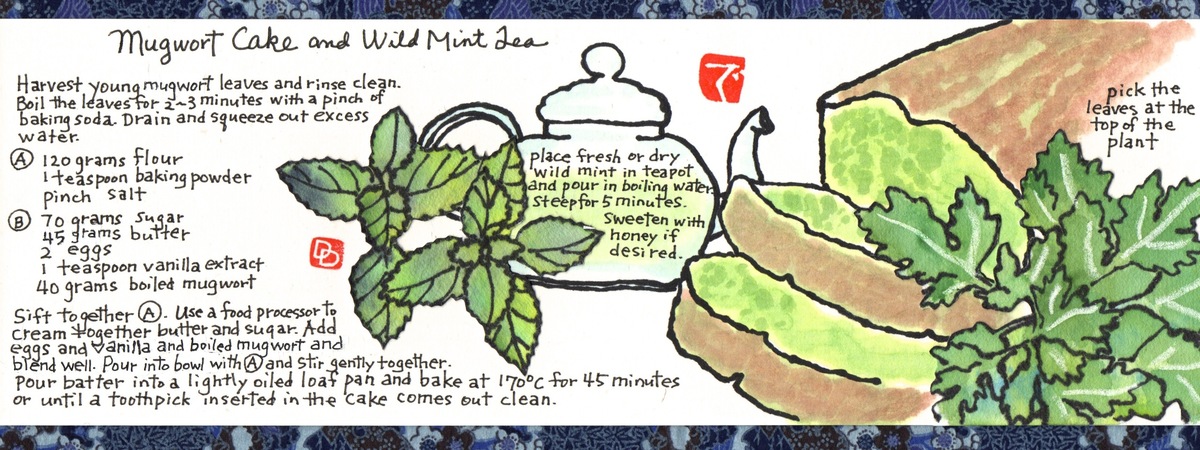 Mugwort Cake and Wild Mint Tea
Harvest young mugwort leaves and rinse clean.
Boil the leaves for 2~3 minutes with a pinch of
baking soda. Drain and squeeze out excess
water.
Ⓐ 120 grams flour
1 teaspoon baking powder
pinch salt
Ⓑ 70 grams sugar
45 grams butter
2 eggs
1 teaspoon vanilla extract
40 grams boiled mugwort
Sift together Ⓐ. Use a food processor to
cream together butter and sugar. Add
eggs and vanilla and boiled mugwort and
blend well. Pour into bowl with Ⓐ and stir gently together.
Pour batter into a lightly oiled loaf pan and bake at 170°C for 45 minutes
or until a toothpick inserted in the cake comes out clean.
DD
place fresh or dry
wild mint in teapot
and pour in boiling water.
Steep for 5 minutes.
Sweeten with
honey if
desired.
で
pick the
leaves at the
top of the
plant